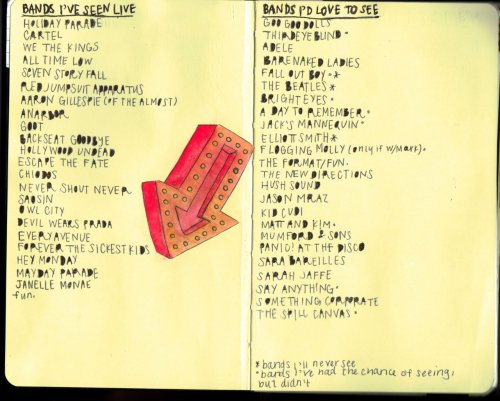 BANDS I'VE SEEN LIVE
HOLIDAY PARADE
CARTEL
WE THE KINGS
ALL TIME LOW
SEVEN STORY FALL
RED JUMPSUIT APPARATUS
AARON GILLESPIE (OF THE ALMOST)
ANARBOR
GOOT
BACKSEAT GOODBYE
HOLLYWOOD UNDEAD
ESCAPE THE FATE
CHIODOS
NEVER SHOUT NEVER
SAOSIN
OWL CITY
DEVIL WEARS PRADA
EVERY AVENUE
FOREVER THE SICKEST KIDS
HEY MONDAY
MAYDAY PARADE
JANELLE MONAE
fun.
BANDS I'D LOVE TO SEE
GOO GOO DOLLS
THIRD EYE BLIND°
ADELE
BARENAKED LADIES
FALL OUT BOY°*
THE BEATLES*
BRIGHT EYES°
A DAY TO REMEMBER°
JACK'S MANNEQUIN°
ELLIOTT SMITH*
FLOGGING MOLLY (only if w/Mark)°
THE FORMAT/FUN.
THE NEW DIRECTIONS
HUSH SOUND
JASON MRAZ
KID CUDI
MATT AND KIM°
MUMFORD & SONS
PANIC! AT THE DISCO
SARA BAREILLES
SARAH JAFFE
SAY ANYTHING°
SOMETHING CORPORATE
THE SPILL CANVAS°
*bands I'll never see
°bands I've had the chance of seeing,
but didn't